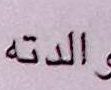 والدته